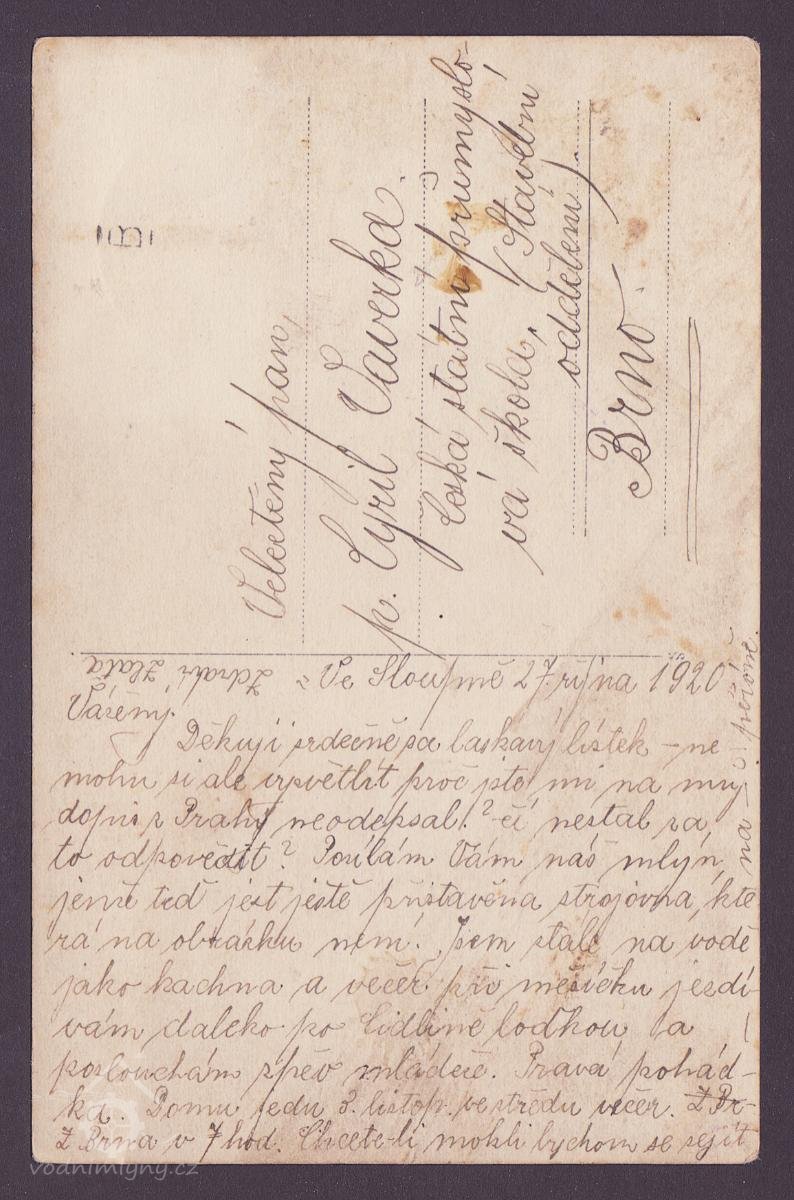 Velectěný pan
p. Cyril Vaverka.
Česká státní průmyslo-
vá škola, (Stavební
oddělení)
Brno.
Ve Sloupně 27. října 1920
Vážený!
Děkuji srdečně za laskavý lístek – ne
mohu si ale vysvětlit proč jste mi na můj
dopis z Prahy neodepsal!? či nestál za
to odpovědít? Posílám Vám náš mlýn
jenž teď jest ještě přistavěna strojovna, kte
rá na obrázku není! Jsem stále na vodě
jako kachna a večer při měsíčku jezdí-
vám daleko po Cidlině loďkou a
poslouchám zpěv mládeže. Pravá pohád-
ka. Domů jedu 3. listop. ve středu večer. Z Br-
Z Brna v 7 hod. Chcete-li mohli bychom se sejít
na
Zdraví Zlata
vodnimlyny.cz